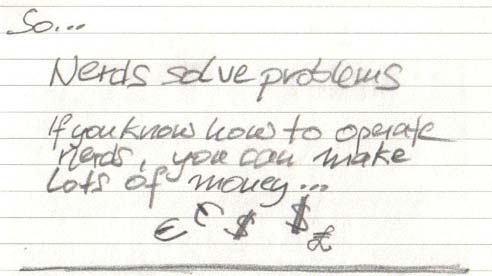 So...
Nerds solve problems
If you know how to operate
nerds, you can make
lots of money...
€ € $ $ £